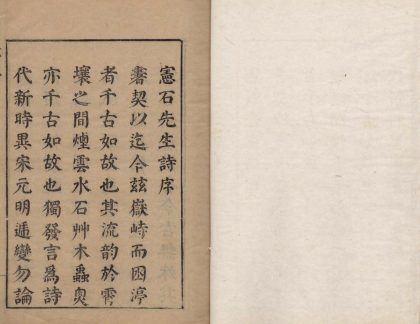 憲石先生詩序
書契以迄今茲嶽峙而困渟
者千古如故也其流韵於霄
壤之間煙雲水石艸木蟲臭
亦千古如故也獨發言爲詩
代新時異宋元明遞變勿論